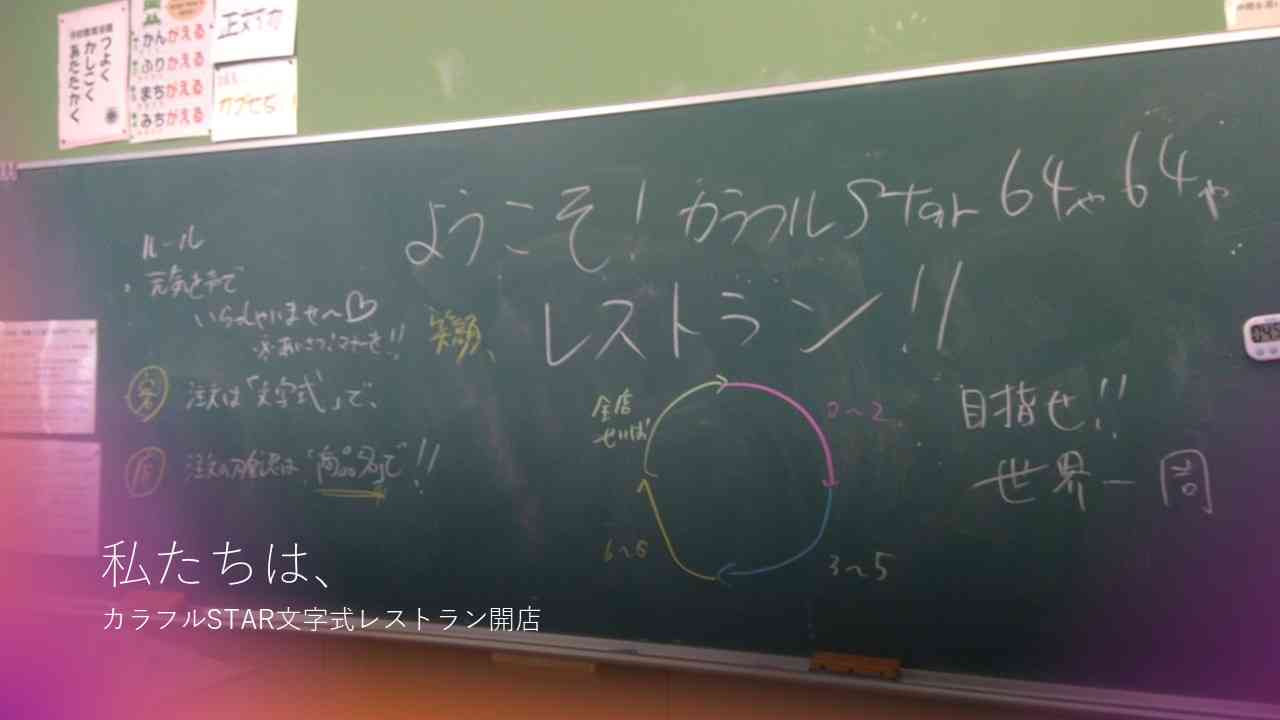 つよく
かしこく
あたたかく
かんがえる
ふりかえる
まちがえる
みちがえる
ようこそ!カラフルStar64や64や
レストラン!!
ルール
元気な声で
いらっしゃいませ～♡
笑顔、
客 注文は「文字式」で、
店 注文の確認は「商品名」で!!
全店
せいは
0～2
3～5
6～8
目指せ!!
世界一周
私たちは、
カラフルSTAR文字式レストラン開店